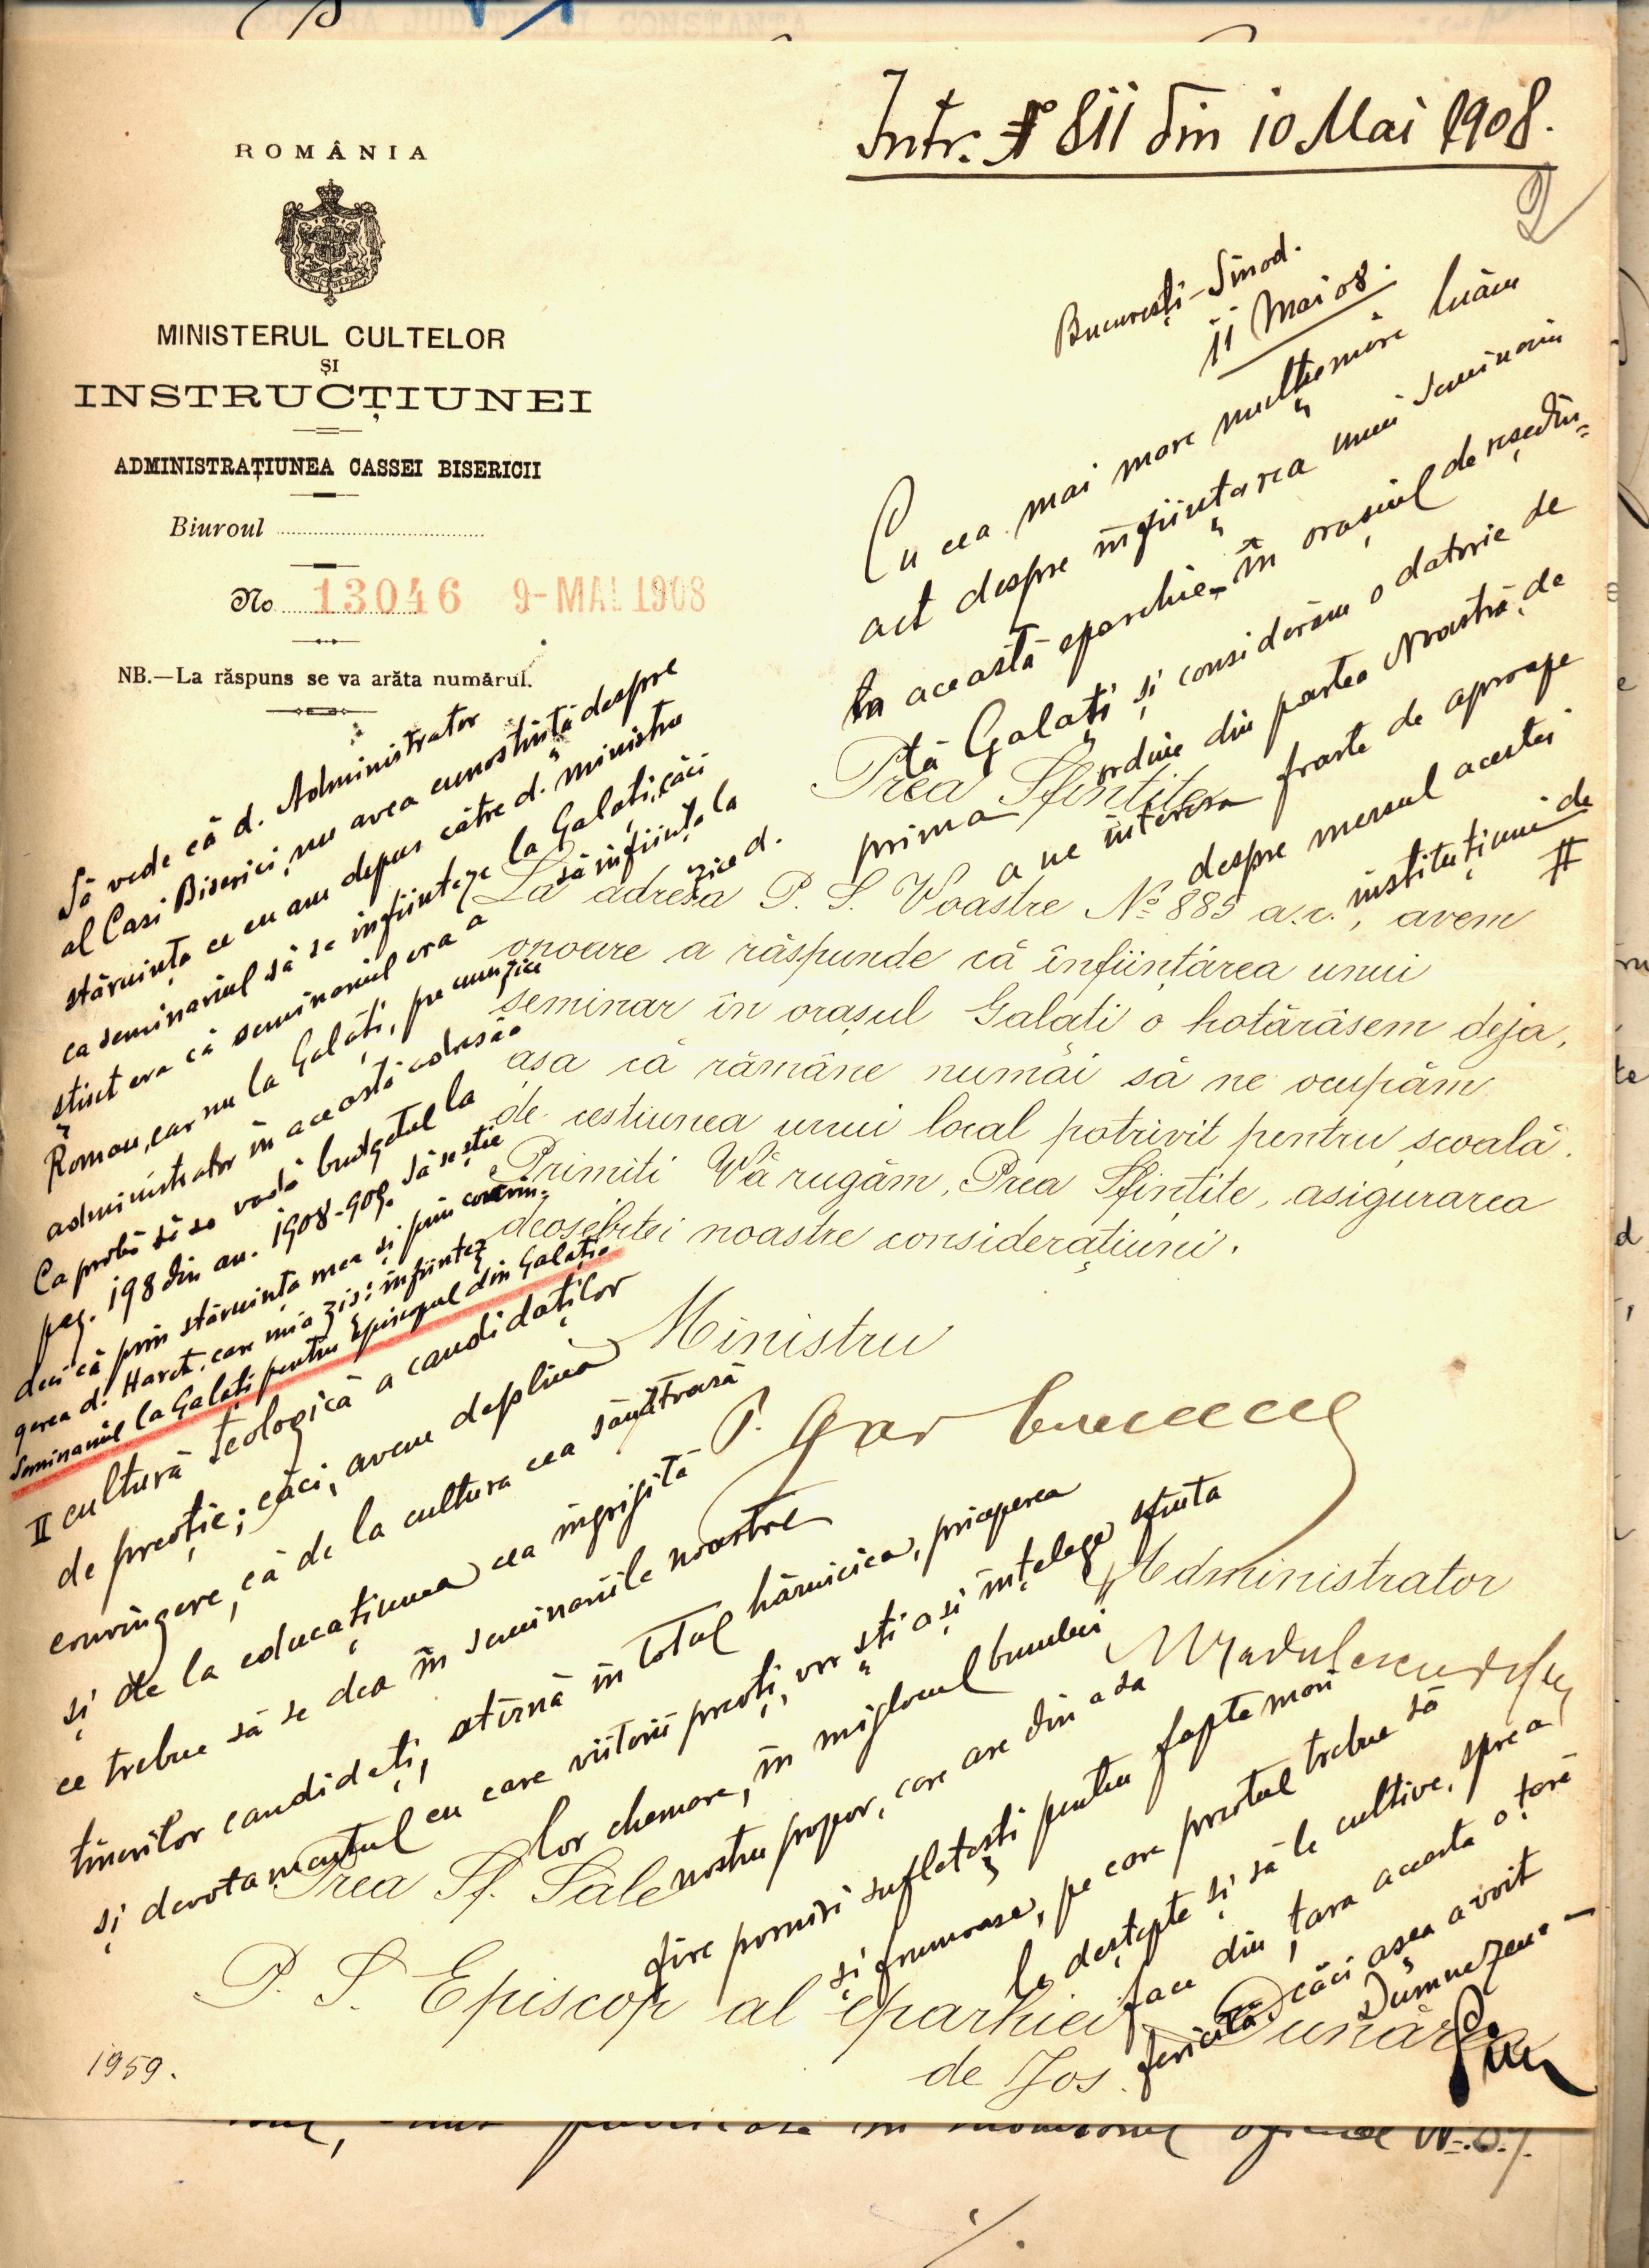 Intr. № 811 din 10 Mai 1908.
2
ROMÂNIA
MINISTERUL CULTELOR
ȘI
INSTRUCȚIUNEI
ADMINISTRAȚIUNEA CASSEI BISERICII
Biuroul
No 13046 9-MAI 1908
NB.—La răspuns se va arăta numărul.
București-Sinod.
11 Mai 08.
Cu cea mai mare mulțemire luăm
act despre înființarea unui seminariu
în această eparhie, în orașul de reședin=
ță Galați și considerăm o datorie de
prima ordine din partea Noastră, de
a ne interesa foarte de aproape
despre mersul acestei
instituțiuni de
#
Prea Sfințite
La adresa P. S. Voastre № 885 a.c., avem
onoare a răspunde că înființarea unui
seminar în orașul Galați o hotărâsem deja,
așa că rămâne numai să ne ocupăm
de cestiunea unui local potrivit pentru școală.
Primiti Vă rugăm, Prea Sfințite, asigurarea
deosebitei noastre considerațiuni.
Ministru
P. Gârboviceanu
Administrator
Prea Sf. Sale
P. S. Episcop al eparhiei Dunărea
de Jos.
1959.
Să vede că d. Administrator
al Casi Biserici, nu avea cunoștință despre
stăruința ce eu am depus către d. ministru
ca seminariul să se înființeze la Galați, căci
știut era că seminariul era a să înființa la
Roman, ear nu la Galați, precum zice d.
administrator în această adresă.
Ca probă să se vadă budgetul la
pag. 198 din an. 1908-909. Să se știe
deci că prin stăruința mea și prin convin=
gerea d. Haret, care mi-a zis: înființez
seminariul la Galați pentru Episcopul din Galați.
II cultură teologică a candidaților
de preoție; căci, avem deplină
convingere, că de la cultura cea sănătoasă
și de la educațiunea cea îngrijită
ce trebue să se dea în seminariile noastre
tinerilor candidați, atîrnă în totul hărnicia, priceperea
și devotamentul cu care viitorii preoți, vor ști a-și înțelege sfînta
lor chemare, în mijlocul bunului
nostru popor, care are din a sa
fire porniri sufletești pentru fapte mari
și frumoase, pe care preotul trebue să
le deștepte și să le cultive, spre a
face din țara aceasta o țară
fericită, căci așea a voit
Dumnezeu.—